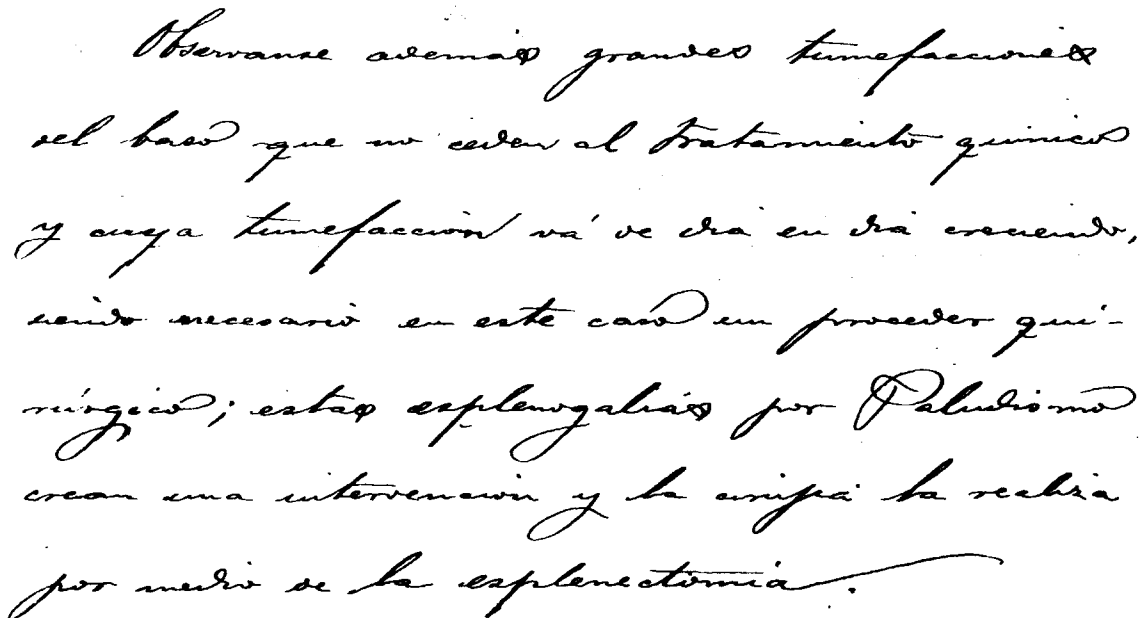 Observanse además grandes tumefacciones
del baso que no ceden al tratamiento quinico
y cuya tumefaccion vá de dia en dia creciendo,
siendo necesario en este caso un proceder qui-
rúrgico; estas esplenogalias por Paludismo
crean una intervencion y la cirujia la realiza
por medio de la esplenectomia.